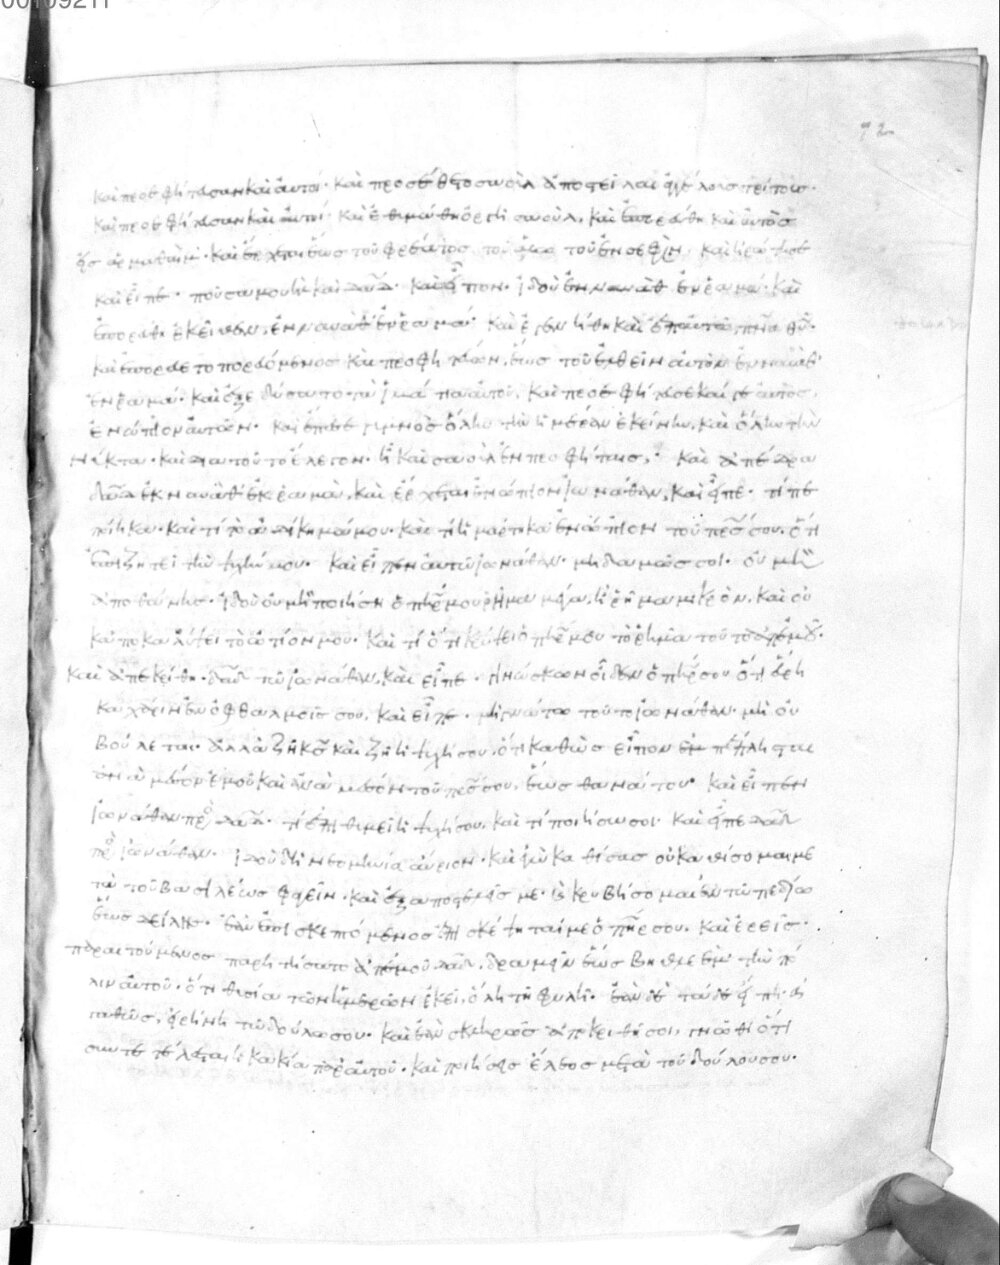 00109211
72
καὶ προεφήτευσαν καὶ αὐτοί· καὶ προσέθετο σαοὺλ ἀποστεῖλαι ἀγγέλους τρίτους·
καὶ προεφήτευσαν καὶ αὐτοί· καὶ ἐθυμώθη ὀργῆ σαοὺλ, καὶ ἐπορεύθη καὶ αὐτὸς
εἰς αρμαθαὶμ· καὶ ἔρχεται ἕως τοῦ φρέατος τοῦ ἅλω τοῦ ἐν σεφὶ· καὶ ἠρώτησε
καὶ εἶπε· ποῦ σαμουὴλ καὶ δαδ· καὶ εἶπον· ἰδοὺ ἐν ναυὰθ ἐν ραμά· καὶ
ἐπορεύθη ἐκεῖθεν, ἐν ναυὰθ ἐν ραμά· καὶ ἐγενήθη καὶ ἐπ αὐτῶ πνα θυ·
καὶ ἐπορεύετο πορευόμενος καὶ προφητεύων, ἕως τοῦ ἐλθεῖν αὐτὸν ἐν ναυὰθ
ἐν ραμά· καὶ ἐξεδύσατο τὰ ἱμάτια αὐτοῦ, καὶ προεφήτευσε καί γε αὐτὸς,
ἐνώπιον αὐτῶν· καὶ ἔπεσε γυμνὸς ὅλην τὴν ἡμέραν ἐκείνην, καὶ ὅλην τὴν
νύκτα· καὶ δια τοῦτο ἔλεγον· ἢ καὶ σαοὺλ ἐν προφήταις; καὶ ἀπέδρα
δαδ ἐκ ναυὰθ ἐκ ραμὰ, καὶ ἔρχεται ἐνώπιον ἰωνάθαν, καὶ εἶπε· τί πε
ποίηκα· καὶ τί τὸ ἀδίκημά μου· καὶ τί ἡμάρτηκα ἐνώπιον τοῦ πρς σου, ὅτι
ἐπιζητεῖ τὴν ψυχήν μου· καὶ εἶπεν αὐτῶ ἰωνάθαν· μηδαμῶς σοι· οὐ μὴ
ἀποθάνης· ἰδοὺ οὐ μὴ ποιήση ὁ πηρ μου ρῆμα μέγα, ἢ ρῆμα μικρὸν, καὶ οὐ
κ ἀποκαλύψει τὸ ὠτίον μου· καὶ τί ὅτι κρύψει ὁ πηρ μου τὸ ρῆμα τοῦτο ἀπ εμοῦ·
καὶ ἀπεκρίθη δαδ τῶ ἰωνάθαν, καὶ εἶπε· γινώσκων οἶδεν ὁ πηρ σου ὅτι εὕρη
κα χάριν ἐν ὀφθαλμοῖς σου, καὶ εἶπε· μὴ γνώτω τοῦτο ἰωνάθαν· μὴ οὐ
βούλεται· ἀλλὰ ζῆ κς καὶ ζῆ ἡ ψυχή σου, ὅτι καθὼς εἶπον ἐμπέπλησται
ἀνὰ μέσον ἐμοῦ καὶ ἀνὰ μέσον τοῦ πρς σου, ἕως θανάτου· καὶ εἶπεν
ἰωνάθαν πρὸς δαδ· τί ἐπιθυμεῖ ἡ ψυχή σου, καὶ τί ποιήσω σοι· καὶ εἶπε δαδ
πρὸς ἰωνάθαν· ἰδοὺ δὴ νεομηνία αὔριον· καὶ ἐγὼ καθίσας οὐ καθίσομαι με
τὰ τοῦ βασιλέως φαγεῖν· καὶ ἐξαποστελεῖς με· καὶ κρυβήσομαι ἐν τῶ πεδίω
ἕως δείλης· ἐὰν ἐπισκεπτόμενος ἐπισκέψηταί με ὁ πηρ σου, καὶ ἐρεῖς·
παραιτούμενος παρητήσατο ἀπ ἐμοῦ δαδ, δραμεῖν ἕως βηθλεὲμ τὴν πό
λιν αὐτοῦ· ὅτι θυσία τῶν ἡμερῶν ἐκεῖ, ὅλη τῆ φυλῆ· ἐὰν δὲ τάδε εἴπη· ἀ
γαθῶς, εἰρήνη τῶ δούλω σου· καὶ ἐὰν σκληρῶς ἀποκριθῆ σοι, γνῶθι ὅτι
συντετέλεσται ἡ κακία παρ αὐτοῦ· καὶ ποιήσεις ἔλεος μετὰ τοῦ δούλου σου·